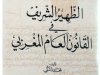 الظهير الشريف
في
القانون العام المغربي